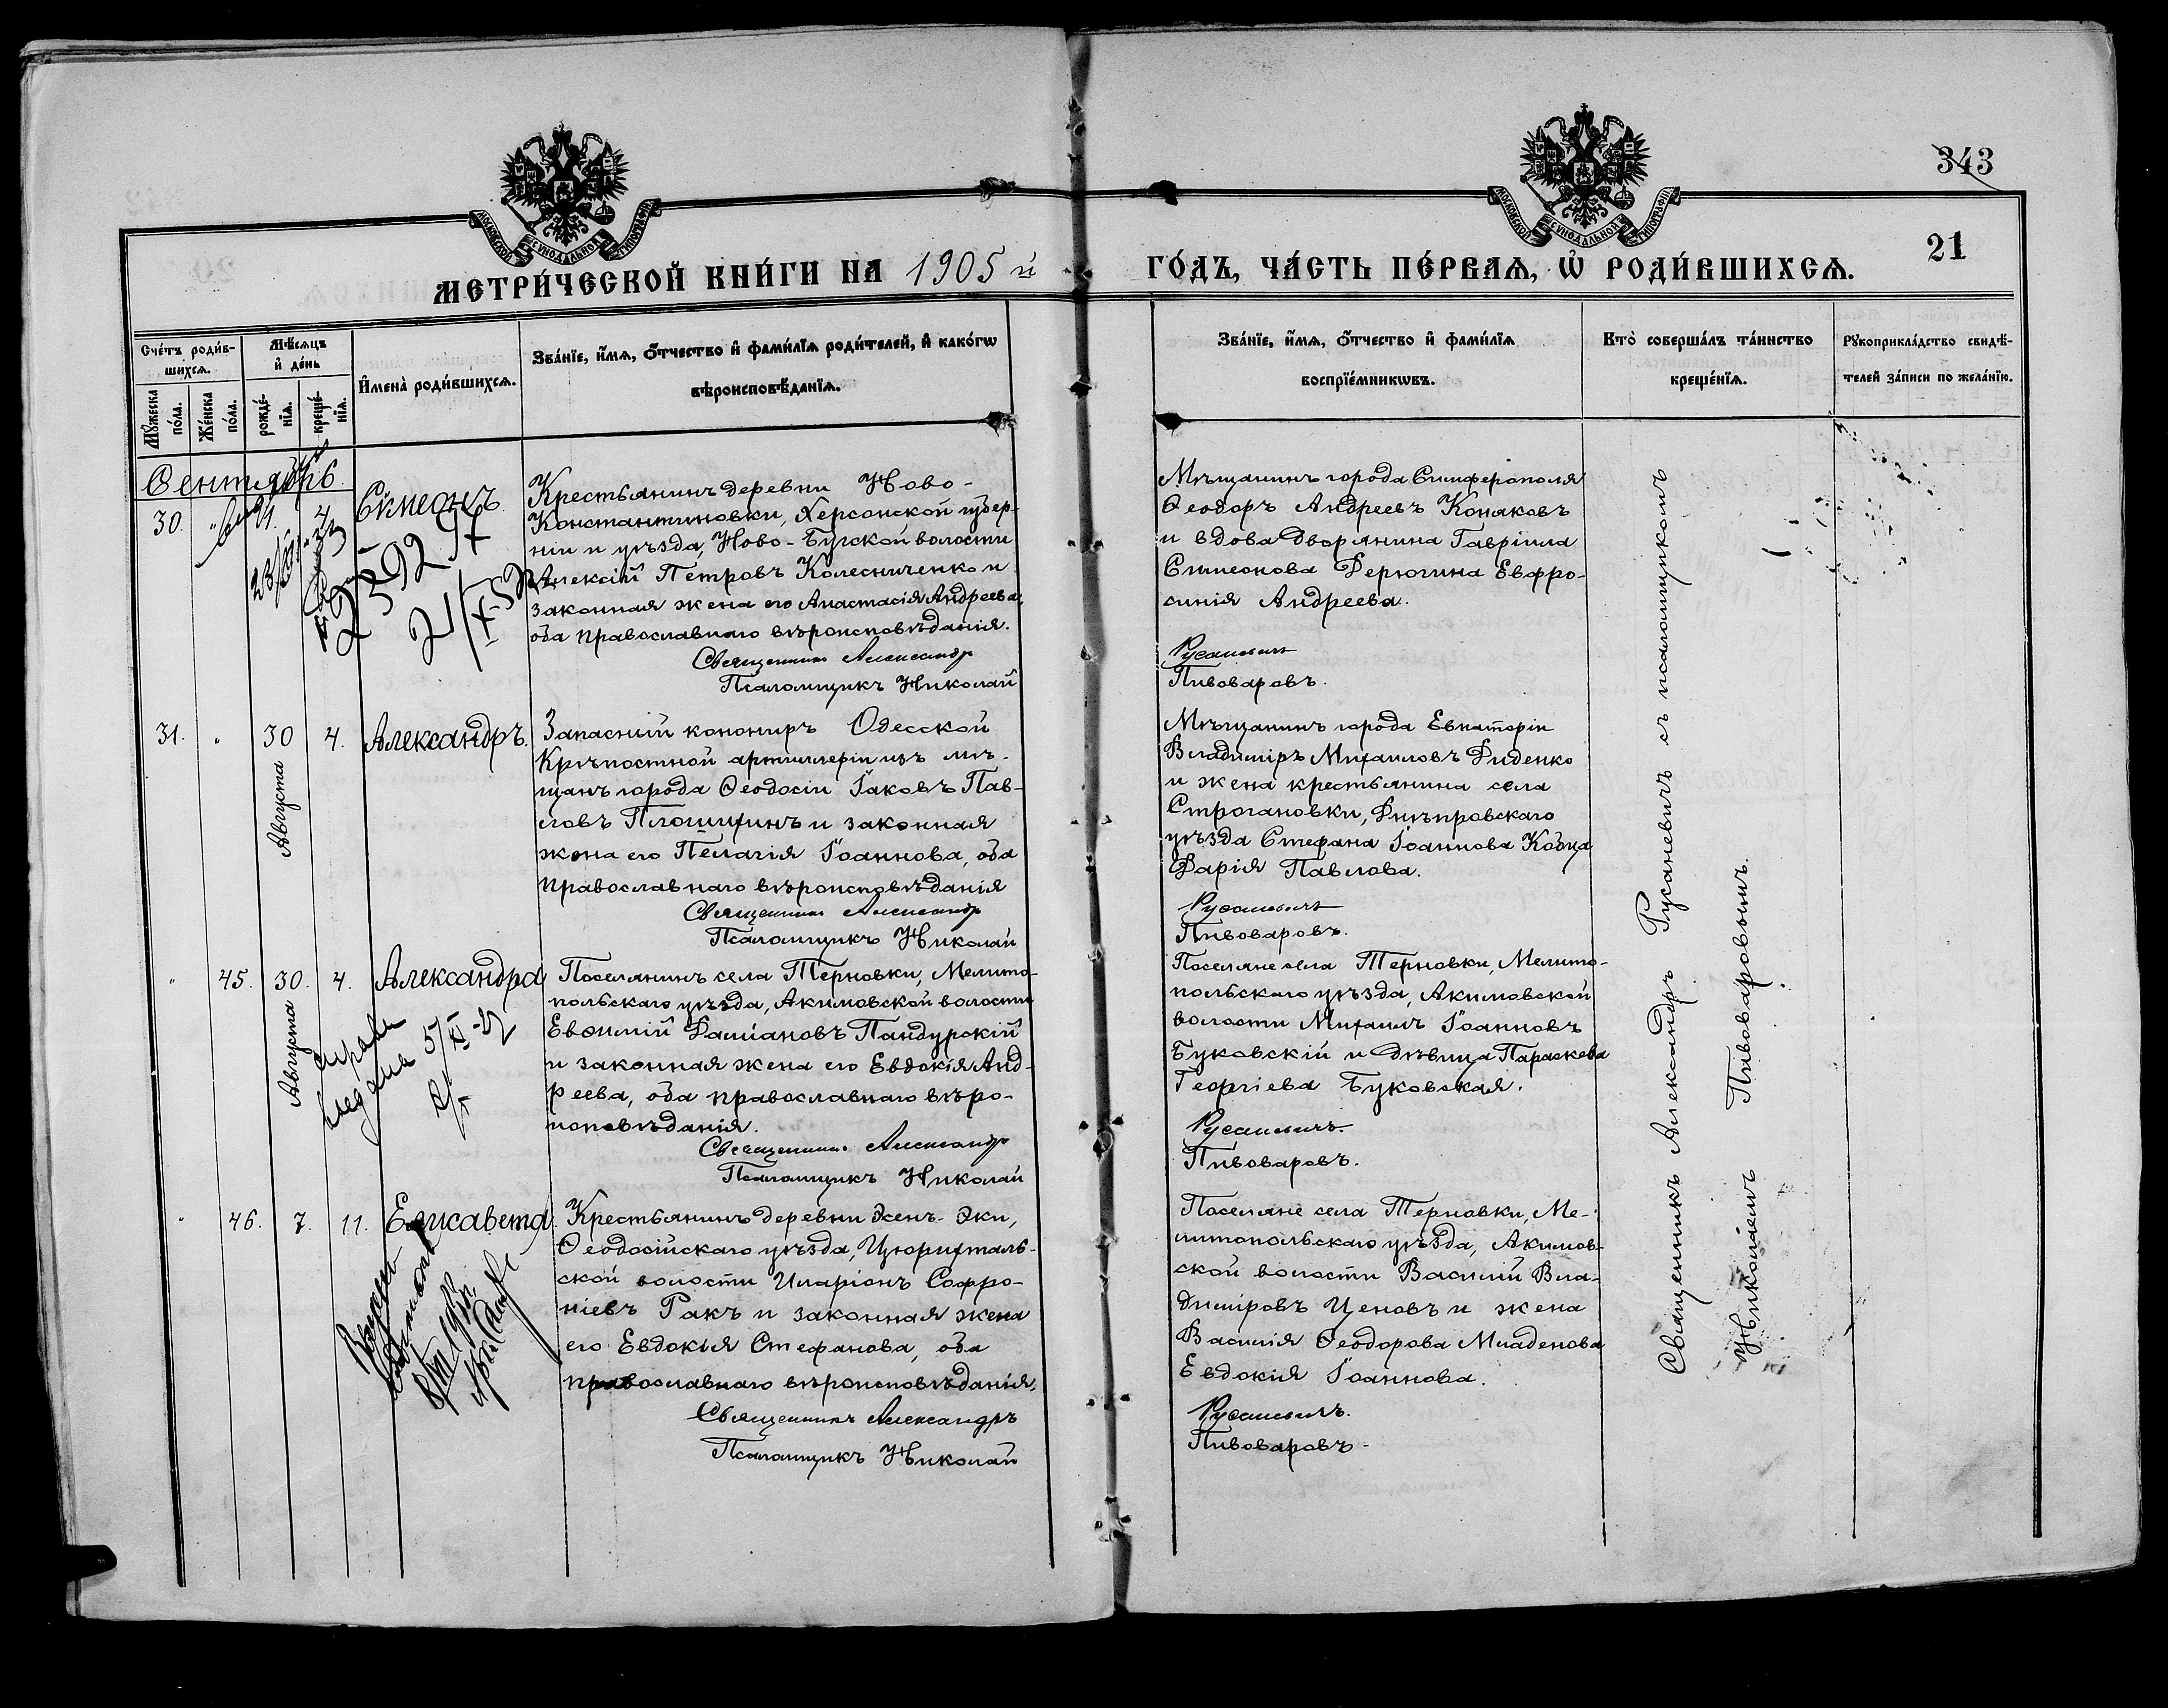 343
21
МОСКОВСКОЙ СѴНОДАЛЬНОЙ ТИПОГРАФІИ
МОСКОВСКОЙ СѴНОДАЛЬНОЙ ТИПОГРАФІИ
МЕТРИ́ЧЕСКОЙ КНИ́ГИ НА 1905 й
ГО́ДЪ, ЧА́СТЬ ПЕ́РВАѦ, Ѡ҆ РОДИ́ВШИХСѦ.
Сче́тъ роди́в-
шихсѧ.
Мѣ́сѧцъ
и҆ де́нь
Мꙋ́жеска
по́ла.
Же́нска
по́ла.
рожде́-
нїѧ.
креще́-
нїѧ.
И҆мена̀ роди́вшихсѧ.
Зва́нїе, и҆́мѧ, ѻ҆́тчество и҆ фами́лїѧ роди́телей, и҆ како́гѡ
вѣроисповѣ́данїѧ.
Зва́нїе, и҆́мѧ, ѻ҆́тчество и҆ фами́лїѧ
воспрїе́мникѡвъ.
Кто̀ соверша́лъ та́инство
креще́нїѧ.
Рꙋкоприкла́дство свидѣ́-
телей за́писи по жела́нїю.
Сентябрь
30. " 4. Сѵмеонъ.
Крестьянинъ деревни Ново-
Константиновки, Херсонской губер-
ніи и уѣзда, Ново-Бугской волости
Алексій Петровъ Колесниченко и
законная жена его Анастасія Андреева,
оба православнаго вѣроисповѣданія.
Священникъ Александръ
Псаломщикъ Николай
Мѣщанинъ города Симферополя
Ѳеодоръ Андреевъ Конаковъ
и вдова дворянина Гавріила
Симеонова Дерюгина Евфро-
синія Андреева.
Русаневичъ
Пивоваровъ.
31. " 30 4. Александръ.
Августа
Запасный канониръ Одесской
Крѣпостной артиллеріи изъ мѣ-
щанъ города Ѳеодосіи Іаковъ Пав-
ловъ Площицинъ и законная
жена его Пелагія Іоаннова, оба
православнаго вѣроисповѣданія
Священникъ Александръ
Псаломщикъ Николай
Мѣщанинъ города Евпаторіи
Владиміръ Михаиловъ Диденко
и жена крестьянина села
Строгановки, Днѣпровскаго
уѣзда Стефана Іоаннова Кобца
Дарія Павлова.
Русаневичъ
Пивоваровъ.
" 45. 30. 4. Александра
Августа
Поселянинъ села Терновки, Мелито-
польскаго уѣзда, Акимовской волости
Евѳимій Даміановъ Пандурскій
и законная жена его Евдокія Анд-
реева, оба православнаго вѣро-
исповѣданія.
Священникъ Александръ
Псаломщикъ Николай
Поселяне села Терновки, Мелито-
польскаго уѣзда, Акимовской
волости Михаилъ Іоанновъ
Буковскій и дѣвица Параскева
Георгіева Буковская.
Русаневичъ.
Пивоваровъ.
" 46. 7. 11. Елисавета.
Крестьянинъ деревни Эсенъ-Эки,
Ѳеодосійскаго уѣзда, Цюрихталь-
ской волости Иларіонъ Софро-
ніевъ Ракъ и законная жена
его Евдокія Стефанова, оба
православнаго вѣроисповѣданія.
Священникъ Александръ
Псаломщикъ Николай
Поселяне села Терновки, Ме-
литопольскаго уѣзда, Акимов-
ской волости Василій Вла-
диміровъ Ценовъ и жена
Василія Ѳеодорова Младенова
Евдокія Іоаннова.
Русаневичъ.
Пивоваровъ.
Священникъ Александръ Русаневичъ съ псаломщикомъ
Николаемъ Пивоваровымъ.